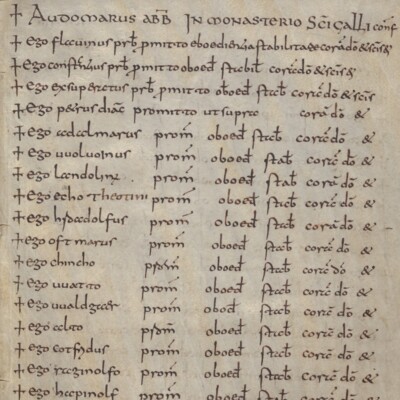 + AUDOMARUS ABB̄ IN MONASTERIO SC̄I GALLI conf
+ ego flauuinus prb̄ pmitto stabilitate corā dō & scīs
+ ego prb̄ pmitto oboed̄ stabil̄ corā dō & scīs
+ ego exsuperatus prb̄ pmitto oboed̄ stab̄ corā dō & scīs
+ ego petrus diāc promitto ut supra corā dō &
+ ego adalmarus prom̄ oboed̄ stab̄ corā dō &
+ ego uuoluoinus prom̄ oboed̄ stab̄ corā dō &
+ ego prom̄ oboed̄ stab̄ corā dō &
+ ego echo Theotini prom̄ oboed̄ stab̄ corā dō &
+ ego prom̄ oboed̄ stab̄ corā dō &
+ ego ostmarus prom̄ oboed̄ stab̄ corā dō &
+ ego chincho prom̄ oboed̄ stab̄ corā dō &
+ ego uuatito prom̄ oboed̄ stab̄ corā dō &
+ ego uualdgaer prom̄ obod̄ stab̄ corā dō &
+ ego prom̄ obod̄ stab̄ corā dō &
+ ego prom̄ obod̄ stab̄ corā dō &
+ ego raginolfo prom̄ obod̄ stab̄ corā dō &
+ ego prom̄ obod̄ stab̄ corā dō &